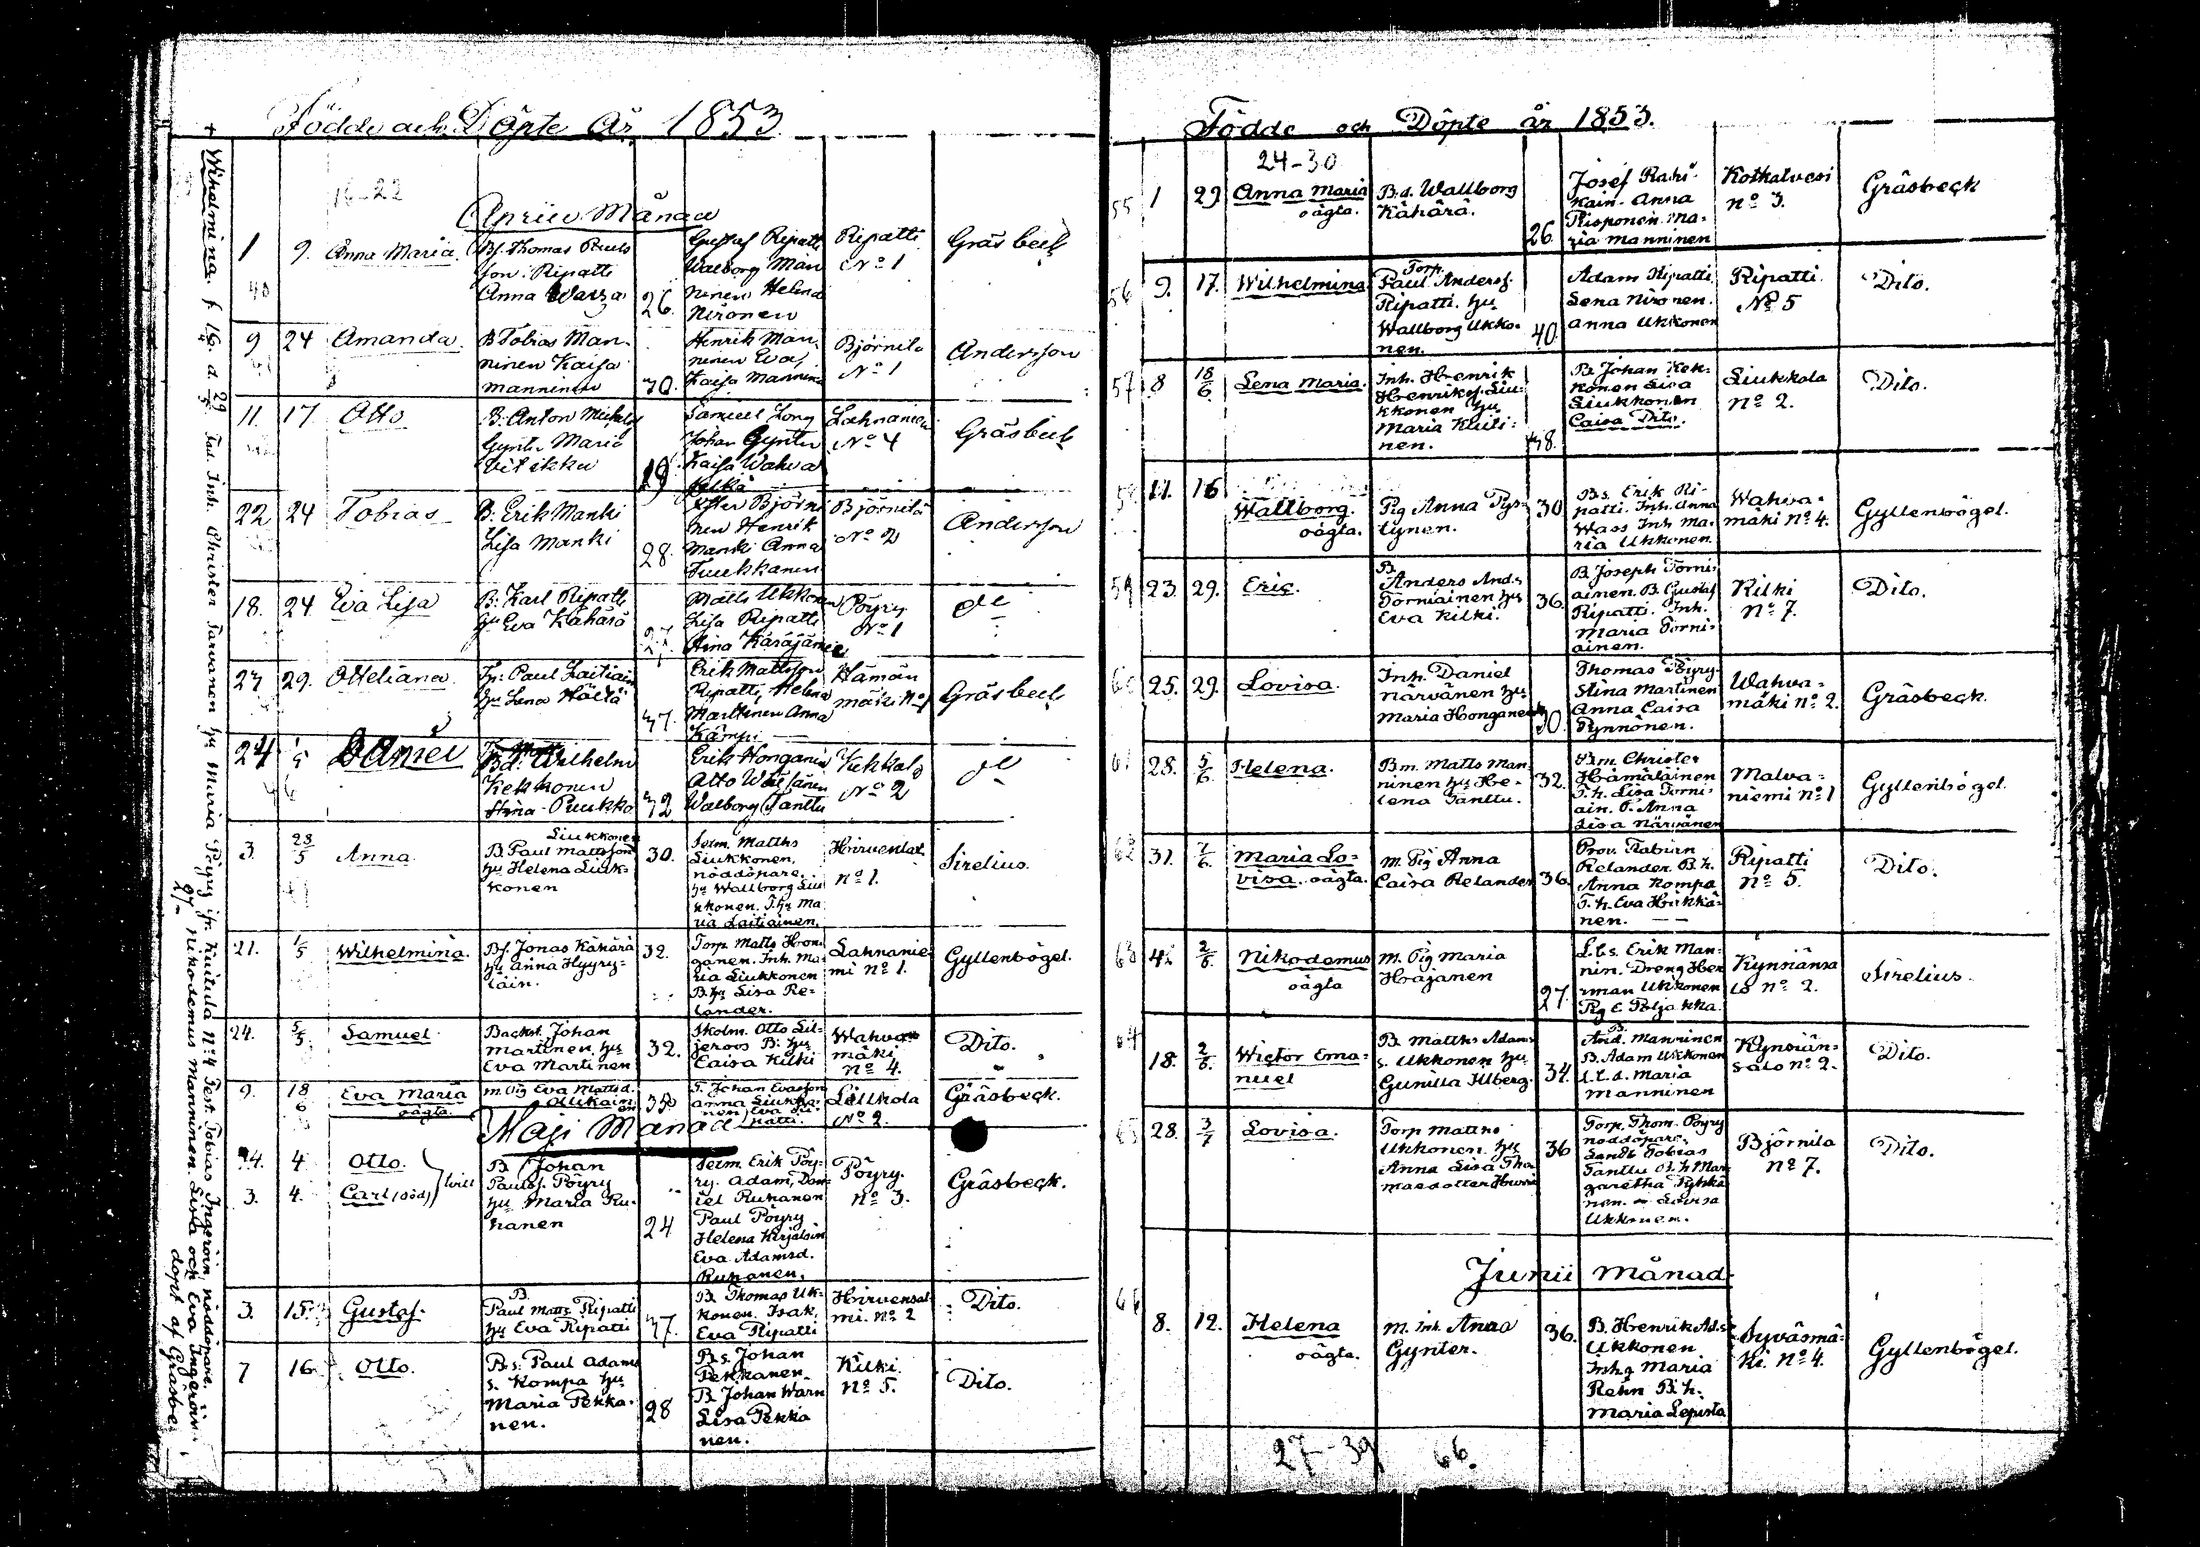 Födde och Döpte År 1853
16-22
April Månad
1 9. Anna Maria Bs. Thomas Pauls
son Ripatti
Anna Warza 26.
Gustaf Ripatti
Walborg Man
ninen Helena
Nironen
Ripatti
No 1
Gräsbeck
9 24 Amanda B Tobias Man-
ninen Kaisa
Manninen 30.
Henrik Man-
ninen Eva,
Kaisa Mannin
Björnila
No 1
Andersson
11. 17 Otto B. Anton
Gynter Maria
Vitikka 19
Samuel
Johan Gynter
Kaisa Wahva
No 4
Gräsbeck
22 24 Tobias B. Erik Manki
Lisa Manki 28.
Björni
nen Henrik
Manki Anna
Tuukkanen
Björnilä
No 2
Andersson
18. 24 Eva Lisa B. Karl Ripatti
hu Eva Kähärä 27
Matts Ukkonen
Lisa Ripatti
Stina
Pöyry
No 1
27 29. Otteliana Paul Laitiain
hu Lena Hältä 47.
Erik Mattsson
Ripatti, Helena
Marttinen Anna
Kämpi
Hämän
mäki No 1
Gräsbeck
24 1/5 Daniel Wilhelm
Kekkonen
Stina Puukko 42
Erik Honganen
Otto
Walborg Tanttu
Kukkola
No 2
3. 23/5 Anna Liukkonen
B. Paul Mattsson
hu Helena Liuk-
konen 30.
Matths
Liukkonen,
nöddöpare,
hu Wallborg Liu
kkonen. T. hu Ma
ria Laitiainen.
no 1.
Sirelius.
21. 1/5 Wilhelmina. Bs. Jonas Kähärä
hu Anna Hyyry-
läin. 32.
Torp. Matts Hron-
ganen. Inh. Ma-
ria Liukkonen
B. hu Lisa Re-
lander.
Lahnanie-
mi no 1.
Gyllenbögel.
24. 5/5 Samuel Backst. Johan
Martinen hu
Eva Martinen 32.
Skolm. Otto Lil-
jeroos B. hu
Caisa Kilki
Wahva
mäki
no 4.
Dito.
9. 18/6 Eva Maria
oägta. m. Pig Eva Mattsd.
Ollikain
en
T. Johan Evasson
Anna Liukko-
nen Eva Ri-
patti.
No 2.
Gräsbeck.
Maji Månad
4. 4 Otto.
3. 4. Carl (död)
B. Johan
Paulss. Pöyry
hu Maria Ru-
hanen 24
Erik Pöy-
ry. Adam, Dan-
iel Ruhanen
Paul Pöyry
Helena Kirjalain
Eva Adamsd.
Ruhanen.
Pöyry.
no 3.
Gräsbeck.
3. 15. Gustaf. B.
Paul Matts Ripatti
hu Eva Ripatti 47.
B. Thomas Uk-
konen, Isak,
Eva Ripatti
Hrirvensal-
mi. no 2
Dito.
7 16. Otto. B. s. Paul Adams
s. Kompa hu
Maria Pekka-
nen. 28
B. s. Johan
Pekkanen.
B. Johan Warn
Lisa Pekka
nen.
Kilki
no 5.
Dito.
+ Wilhelmina. f. 16. d. 29/5 Inh. Christer Tarvanen hu Maria Pöyry ifr. Kuitula No 4 Test. Tobias Ingeroin, nöddöpare.
27/- Nikodemus Manninen. Lisa och Eva Ingeroin.
döpt af Gräsbe
Födde och Döpte år 1853.
24-30
55 1 29 Anna Maria
oägta. B. d. Wallborg
Kähärä. 26.
Josef Rahi-
kain. Anna
Risponen. Ma-
ria Manninen
Kothalvesi
no 3.
Gräsbeck
56 9. 17. Wilhelmina Torp.
Paul Anderss.
Ripatti. hu
Wallborg Ukko-
nen. 40.
Adam Ripatti,
Lena Nironen.
Anna Ukkonen
Ripatti.
No 5
Dito.
57 8 18/6 Lena Maria. Inh. Hrenrik
Hrenrikss. Liu-
kkonen hu
Maria Kuiti-
nen. 38.
B. Johan Kek-
konen Lisa
Liukkonen
Caisa Dito.
Liukkola
no 2.
Dito.
58 11. 16 Wallborg.
oägta. Pig Anna Pys-
tynen. 30
B. s. Erik Ri-
patti. Inh. Anna
Wass Inh Ma-
ria Ukkonen.
Wahva-
mäki no 4.
Gyllenbögel.
59 23. 29. Eric. B.
Anders And. s.
Törniainen hu
Eva Kilki. 36.
B. Joseph Törni-
ainen. B. Gustaf
Ripatti. Inh.
Maria Törni-
ainen.
Kilki
No 7.
Dito.
60 25. 29. Lovisa. Inh. Daniel
Närvänen hu
Maria Hronganen 30.
Thomas Pöyry
Stina Martinen
Anna Caisa
Pynnönen.
Wahva-
mäki no 2.
Gräsbeck.
61 28. 5/6. Helena. Bm. Matts Man-
ninen hu Hre-
lena Tanttu. 32.
Bm. Christer
Hrämäläinen
T. h. Lisa Torni-
ain. P. Anna
Lisa Närvänen
Malva-
niemi no 1
Gyllenbögel.
62 31. 7/6. Maria Lo-
visa. oägta. m. Pig Anna
Caisa Relander 36.
Prov. Taburn
Relander. B. h.
Anna Kompa
T. h. Eva Hrukkä-
nen.
Ripatti
no 5.
Dito.
63 2/6. Nikodemus
oägta m. Pig Maria
Hrajanen 27.
L. b. s. Erik Man-
nin. Dreng Her
rman Ukkonen
Pig E Poljakka.
Kynsiänsa
lo no 2.
Sirelius.
64 18. 2/6. Wictor Ema-
nuel B. Matths Adams
s. Ukkonen hu
Gunilla Illberg. 34.
B.
And. Manninen
B. Adam Ukkonen
l. l. d. Maria
Manninen
Kynsiän-
salo no 2.
Dito.
65 28. 3/7 Lovisa. Torp Matths
Ukkonen hu
Anna Lisa Tho-
masdotter 36
Torp. Thom. Pöyry
nöddöpare.
Tobias
Tanttu B. h Mar
garetha
nen. Lovisa
Ukkonen.
Björnila
no 7.
Dito.
Junii Månad.
66 8. 12. Helena
oägta. m. Inh. Anna
Gynter. 36.
B. Hrenrik Ad. s.
Ukkonen
Inh. Maria
Rehn B. h.
Maria Lepista
Syväsmä-
ki. No 4.
Gyllenbögel.
27-39 66.